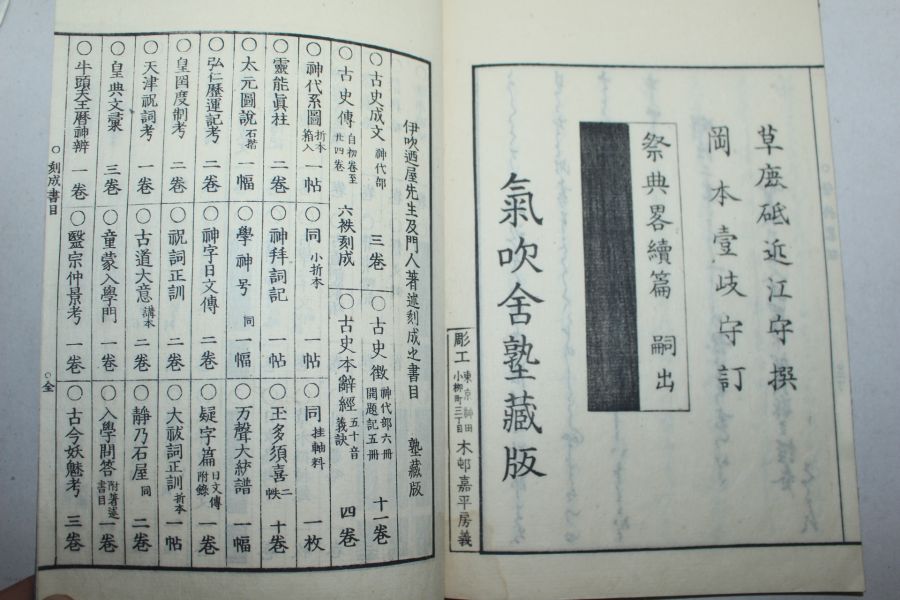 草鹿砥近江守撰
岡本壹歧守訂
祭典畧續篇 嗣出
氣吹舍塾藏版
彫工 東京神田小柳町三丁目 木邨嘉平房義
伊吹迺屋先生及門人著述刻成之書目 塾藏版
○古史成文 神代部 三卷
○古史徵 神代部六冊 開題記五冊 十一卷
○古史傳 自初卷至廿四卷 六帙刻成
○古史本辭經 五十音義訣 四卷
○神代系圖 折本箱入 一帖
○同 小折本 一帖
○同 挂軸料 一枚
○靈能眞柱 二卷
○神拜詞記 一帖
○玉多須喜 二帙 十卷
○太元圖說 石摺 一幅
○學神号 同 一幅
○万聲大統譜 一幅
○弘仁歷運記考 二卷
○神字日文傳 二卷
○疑字篇 日文傳附錄 一卷
○皇国度制考 二卷
○祝詞正訓 二卷
○大祓詞正訓 折本 一帖
○天津祝詞考 一卷
○古道大意 講本 二卷
○靜乃石屋 同 二卷
○皇典文彙 三卷
○童蒙入學門 一卷
○入學問答 附著述書目 一卷
○牛頭天王曆神辨 一卷
○毉宗仲景考 一卷
○古今妖魅考 三卷
○刻成書目
○全